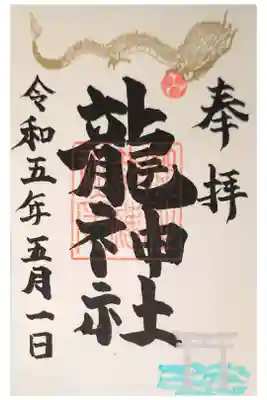 奉拝
龍神社
令和五年五月一日